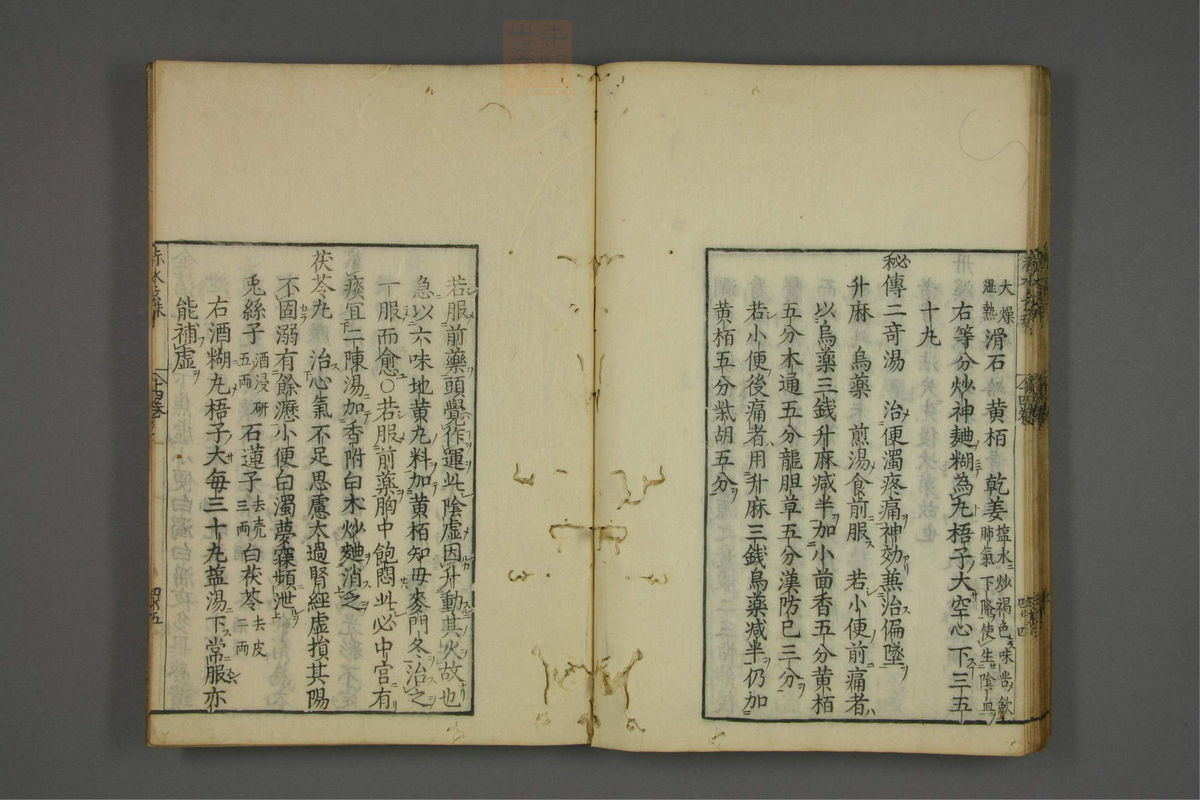 大燥濕熱滑石 黄栢 乾姜塩水炒褐色味歛肺氣下降使生陰血
右等分炒神麯糊為丸梧子大空心下三五
十九
秘傳二奇湯 治便濁疼痛神効兼治偏墜
升麻 烏藥 煎湯食前服 若小便前痛者
以烏藥三錢升麻減半加小茴香五分黄栢
五分木通五分龍胆草五分漢防已三分
若小便後痛者用升麻三錢烏藥減半仍加
黄栢五分柴胡五分
若服前藥頭覺作運此陰虛因升動其火故也
急以六味地黄丸料加黄栢知母麥門冬治之
一服而愈○若服前藥胸中飽悶此必中宮有
痰宜二陳湯加香附白朮炒麯消之
茯苓丸 治心氣不足思慮太過腎經虛損其陽
不固溺有餘瀝小便白濁夢寐頻泄
兎絲子酒浸研五兩石蓮子去壳三兩白茯苓去皮二兩
右酒糊丸梧子大每三十丸塩湯下常服亦
能補虛